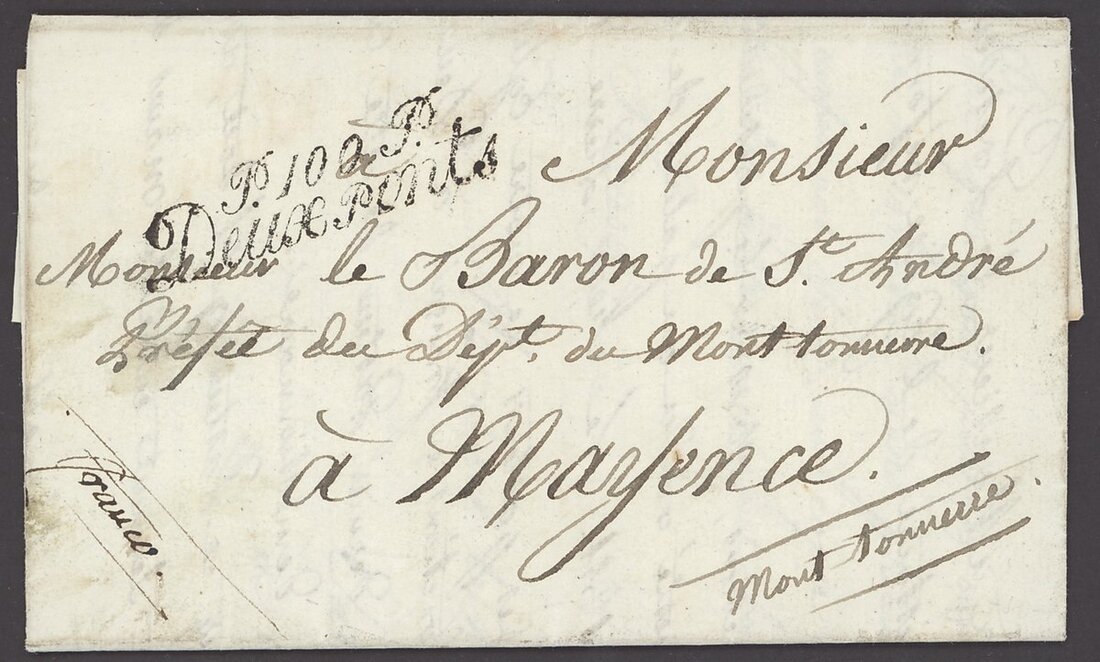 P. 100 P.
Deux ponts
à Monsieur
Monsieur le Baron de St. André
Préfet du Dépt. du Mont tonnerre.
à Mayence.
franco.
Mont tonnerre.